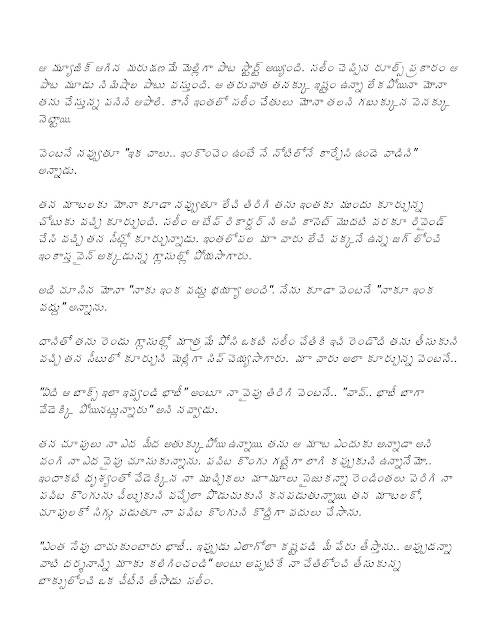 ఆ మ్యూజిక్ ఆగిన మరుక్షణమే మెల్లిగా పాట స్టార్ట్ అయ్యింది. సలీం చెప్పిన రూల్స్ ప్రకారం ఆ
పాట మూడు నిమిషాల పాటు వస్తుంది. ఆ తరువాత తనక్కు ఇష్టం ఉన్నా లేకపోయినా మోనా
తను చేస్తున్న పనిని ఆపాలి. కానీ ఇంతలో సలీం చేతులు మోనా తలని గబుక్కున వెనక్కు
నెట్టాయి.
వెంటనే నవ్వుతూ "ఇక చాలు.. ఇంకొంచెం ఉంటే నే నోటిలోనే కార్చేసి ఉండె వాడిని"
అన్నాడు.
తన మాటలకు మోనా కూడా నవ్వుతూ లేచి తిరిగి తను ఇంతకు ముందు కూర్చున్న
చోటుకు వచ్చి కూర్చుంది. సలీం ఆ టేప్ రికార్డర్ ని ఆపి కాసెట్ మొదటి వరకూ రీవైండ్
చేసి వచ్చి తన సీట్లో కూర్చున్నాడు. ఇంతలోపల మా వారు లేచి పక్కనే ఉన్న జగ్ లోంచి
ఇంకాస్త వైన్ అక్కడున్న గ్లాసుల్లో పోయసాగారు.
అది చూసిన మోనా "నాకు ఇంక వద్దు భయ్యా అంది". నేను కూడా వెంటనే "నాకూ ఇంక
వద్దు" అన్నాను.
దానితో తను రెండు గ్లాసుల్లో మాత్రమే పోసి ఒకటి సలీం చేతికి ఇచి రెండొది తను తీసుకుని
వచ్చి తన సీటులో కూర్చుని మెల్లిగా సిప్ చెయ్యసాగారు. మా వారు అలా కూర్చున్న వెంటనే..
"ఏది ఆ బాక్స్ ఇలా ఇవ్వండి భాభీ" అంటూ నా వైపు తిరిగి వెంటనే.. "వావ్.. భాభీ బాగా
వేడెక్కి పోయినట్లున్నారు" అని నవ్వాడు.
తన చూపులు నా ఎద మీద అతుక్కుపోయి ఉన్నాయి. తను ఆ మాట ఎందుకు అన్నాడా అని
వంగి నా ఎద వైపు చూసుకున్నాను. పవిట కొంగు గట్టిగా లాగి కప్పుకుని ఉన్నానేమో..
ఇందాకటి దృశ్యంతో వేడెక్కిన నా ముచ్చికలు మామూలు సైజుకన్నా రెండింతలు పెరిగి నా
పవిట కొంగును చీల్చుకుని వచ్చేలా పొడుచుకుని కనపడుతున్నాయి. తన మాటలకో,
చూపులకో సిగ్గు పడుతూ నా పవిట కొంగుని కొద్దిగా వదులు చేసాను.
"ఎంత సేపు దాచుకుంటారు భాభీ.. ఇప్పుడు ఎలాగోలా కష్టపడి మీ పేరు తీస్తాను.. అప్పుడన్నా
వాటి దర్శనాన్ని మాకు కలిగించండి" అంటు అప్పటికే నా చేతిలోంచి తీసుకున్న
బాక్సులోంచి ఒక చీటీని తీసాడు సలీం.